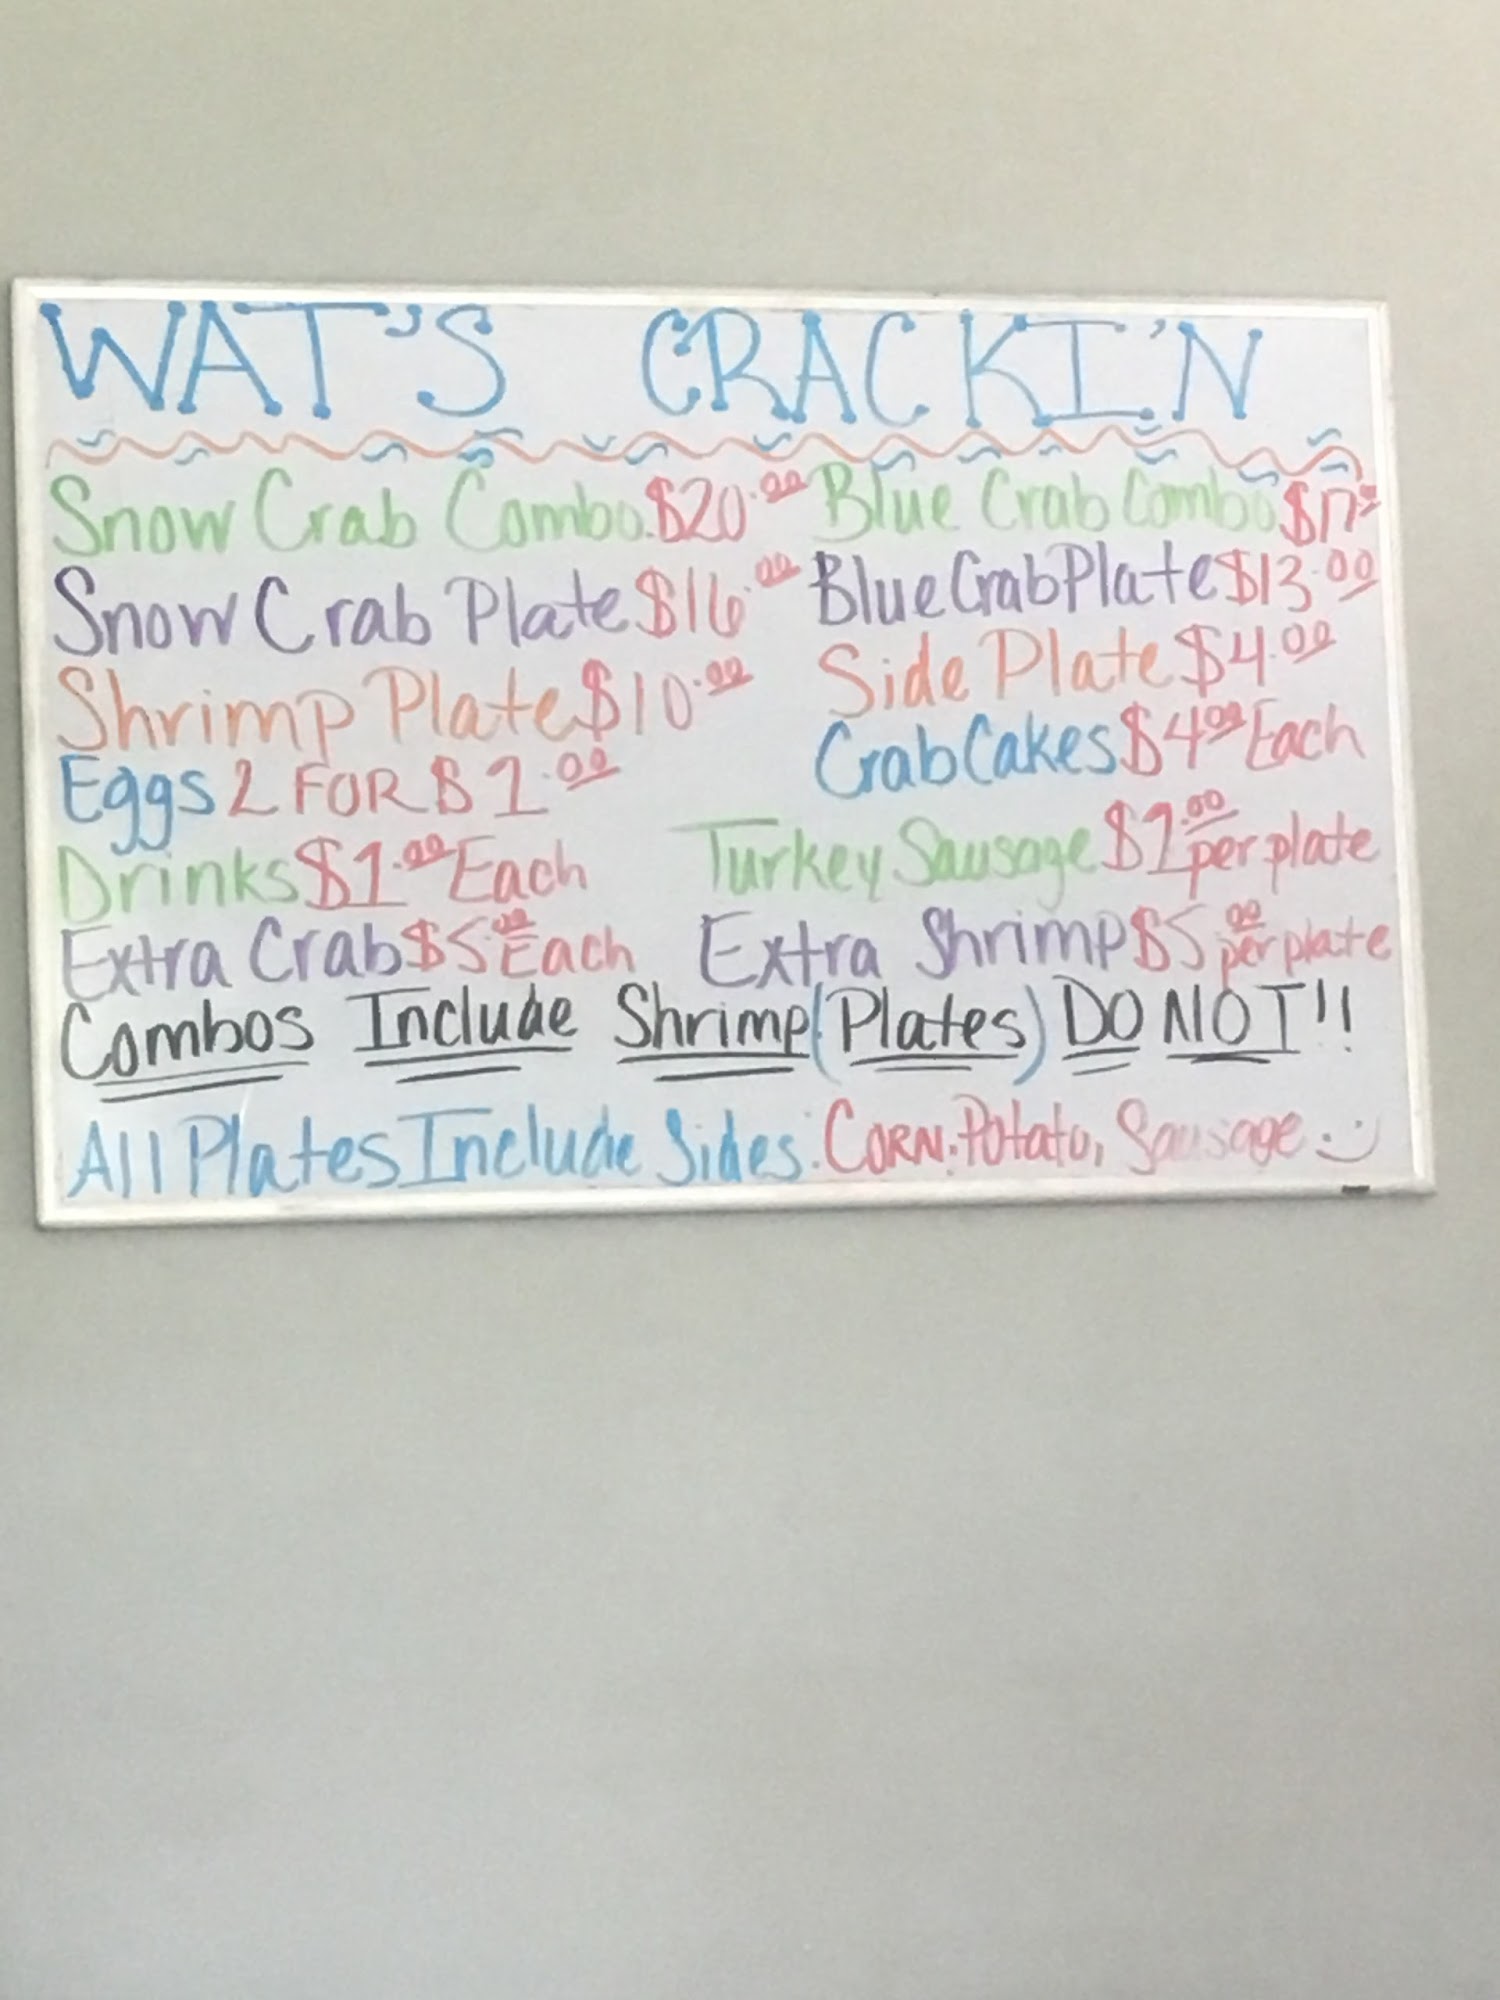 WAT'S CRACKI'N
Snow Crab Combo $20.00 Blue Crab Combo $17
Snow Crab Plate $16.00 Blue Crab Plate $13.00
Shrimp Plate $10.00 Side Plate $4.00
Eggs 2 FOR $1.00 Crab Cakes $4.00 Each
Drinks $1.00 Each Turkey Sausage $1.00 per plate
Extra Crab $5.00 Each Extra Shrimp $5.00 per plate
Combos Include Shrimp (Plates) DO NOT!!
All Plates Include Sides: CORN. Potato, Sausage :)